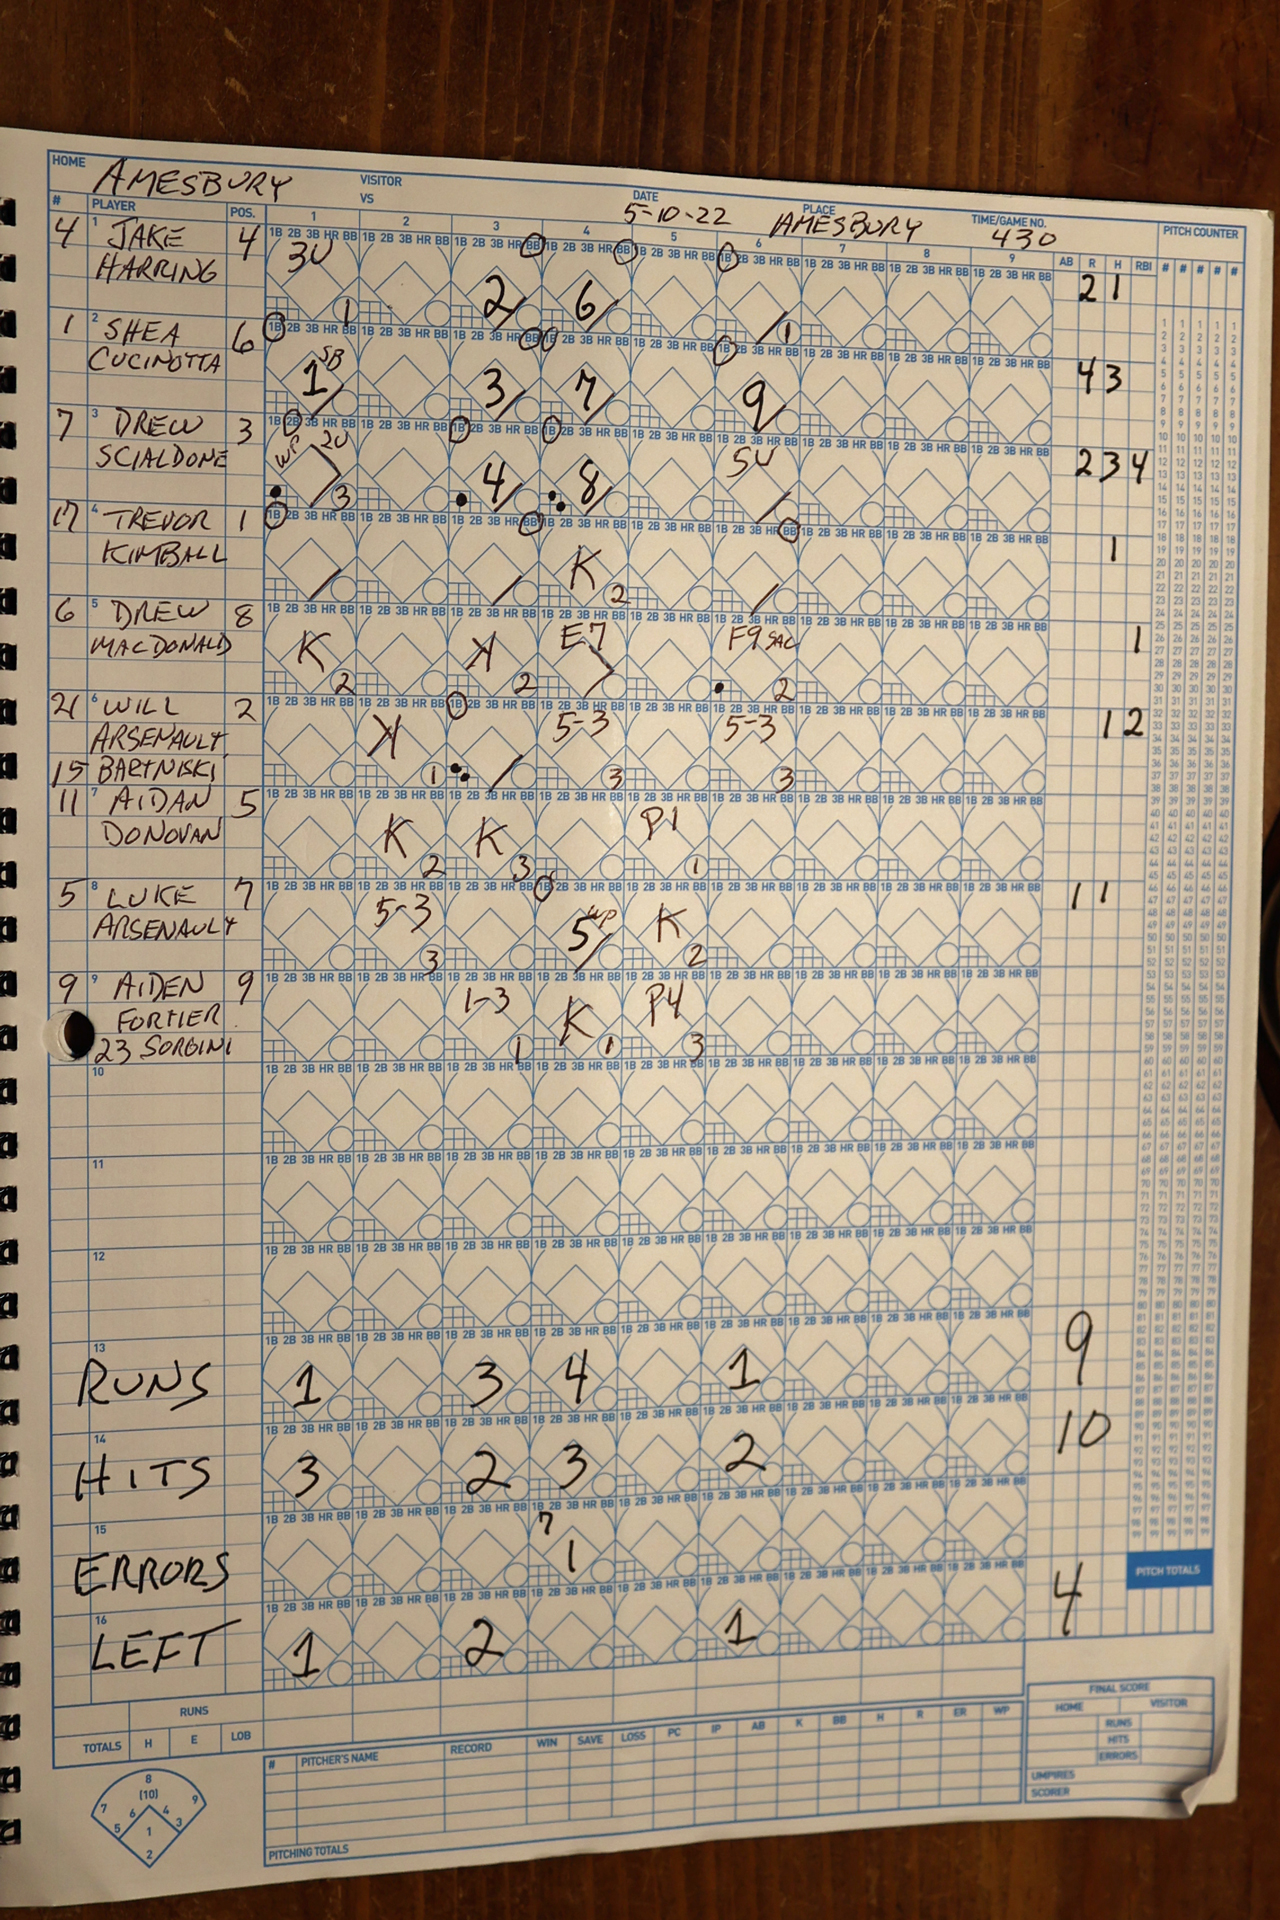 HOME AMESBURY VISITOR VS DATE 5-10-22 PLACE AMESBURY TIME/GAME NO. 430 PITCH COUNTER
# PLAYER POS. 1 2 3 4 5 6 7 8 9 AB R H RBI # # # # #
4 1 JAKE HARRING 4 3U 1 2 6 1 2 1
1 2 SHEA CUCINOTTA 6 1 SB 3 7 9 4 3
7 3 DREW SCIALDONE 3 WP 2U 3 4 8 5U 2 3 4
17 4 TREVOR KIMBALL 1 K 2 1
6 5 DREW MACDONALD 8 K 2 K 2 E7 F9 SAC 2 1
21 6 WILL ARSENAULT 2 K 1 5-3 3 5-3 3 1 2
15 BARTNISKI
11 7 AIDAN DONOVAN 5 K 2 K 3 P1 1
5 8 LUKE ARSENAULT 7 5-3 3 5 WP K 2 1 1
9 9 AIDEN FORTIER 9 1-3 1 K 1 P4 3
23 SORBINI
10
11
12
13 RUNS 1 3 4 1 9
14 HITS 3 2 3 2 10
15 ERRORS 7 1
16 LEFT 1 2 1 4
PITCH TOTALS
RUNS
TOTALS H E LOB
# PITCHER'S NAME RECORD WIN SAVE LOSS PC IP AB K BB H R ER WP
PITCHING TOTALS
FINAL SCORE
HOME VISITOR
RUNS
HITS
ERRORS
UMPIRES
SCORER
8
(10)
7 6 4 9
5 1 3
2